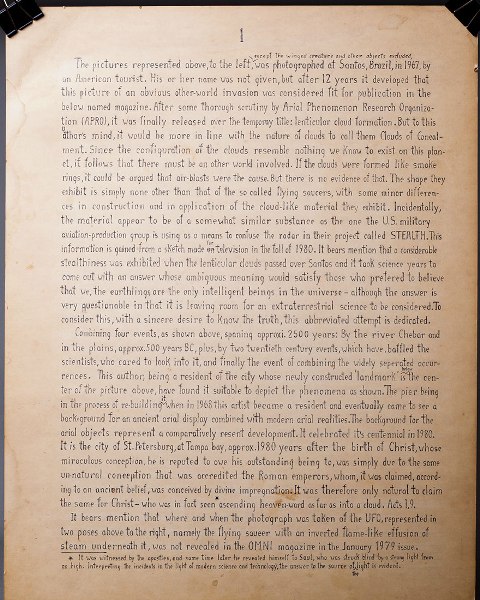 1
except the winged creature and other objects included,
The pictures represented above, to the left, was photographed at Santos, Brazil, in 1967, by
an American tourist. His or her name was not given, but after 12 years it developed that
this picture of an obvious other-world invasion was considered fit for publication in the
below named magazine. After some thorough scrutiny by Arial Phenomenon Research Organiza-
tion (APRO), it was finally released over the temporay title: lenticular cloud formation. But to this
athors mind, it would be more in line with the nature of clouds to call them Clouds of Conceal-
ment. Since the configuration of the clouds resemble nothing we know to exist on this plan-
et, it follows that there must be an other world involved. If the clouds were formed like smoke
rings, it could be argued that air-blasts were the cause. But there is no evidence of that. The shape they
exhibit is simply none other than that of the so called flying saucers, with some minor differen-
ces in construction and in application of the cloud-like material they exhibit. Incidentally,
the material appear to be of a somewhat similar substance as the one the U.S. military
aviation-production group is using as a means to confuse the radar in their project called STEALTH. This
information is gained from a sketch made on television in the fall of 1980. It bears mention that a considerable
stealthiness was exhibited when the lenticular clouds passed over Santos and it took science years to
come out with an answer whose ambiguous meaning would satisfy those who prefered to believe
that we, the earthlings are the only intelligent beings in the universe - although the answer is
very questionable in that it is leaving room for an extraterrestrial science to be considered. To
consider this, with a sincere desire to know the truth, this abbreviated attempt is dedicated.
Combining four events, as shown above, spaning approx. 2500 years: By the river Chebar and
in the plains, approx. 500 years BC, plus, by two twentieth century events, which have baffled the
scientists, who cared to look into it, and finally the event of combining the widely seperated occur-
rences. This author, being a resident of the city whose newly constructed 'landmark' is the cen-
ter of the picture above, have found it suitable to depict the phenomena as shown. The pier being
in the process of re-building when in 1968 this artist became a resident and eventually came to see a
background for an ancient arial display combined with modern arial realities. The background for the
arial objects represent a comparatively resent development. It celebrated its centennial in 1980.
It is the city of St. Petersburg, at Tampa bay, approx. 1980 years after the birth of Christ, whose
miraculous conception, he is reputed to owe his outstanding being to, was simply due to the same
un-natural conception that was accredited the Roman emperors, whom, it was claimed, accord-
ing to an ancient belief, was conceived by divine impregnation. It was therefore only natural to claim
the same for Christ - who was in fact seen * ascending heaven-ward as far as into a cloud. Acts 1,9.
It bears mention that where and when the photograph was taken of the UFO, represented in
two poses above to the right, namely the flying saucer with an inverted flame-like effusion of
steam underneath it, was not revealed in the OMNI magazine in the January 1979 issue.
* It was witnessed by the apostles, and some time later he revealed himself to Saul, who was struck blind by a strong light from
on high. Interpreting the incidents in the light of modern science and technology, the answer to the source of the light is evident.